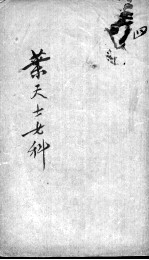 葉天士女科
四